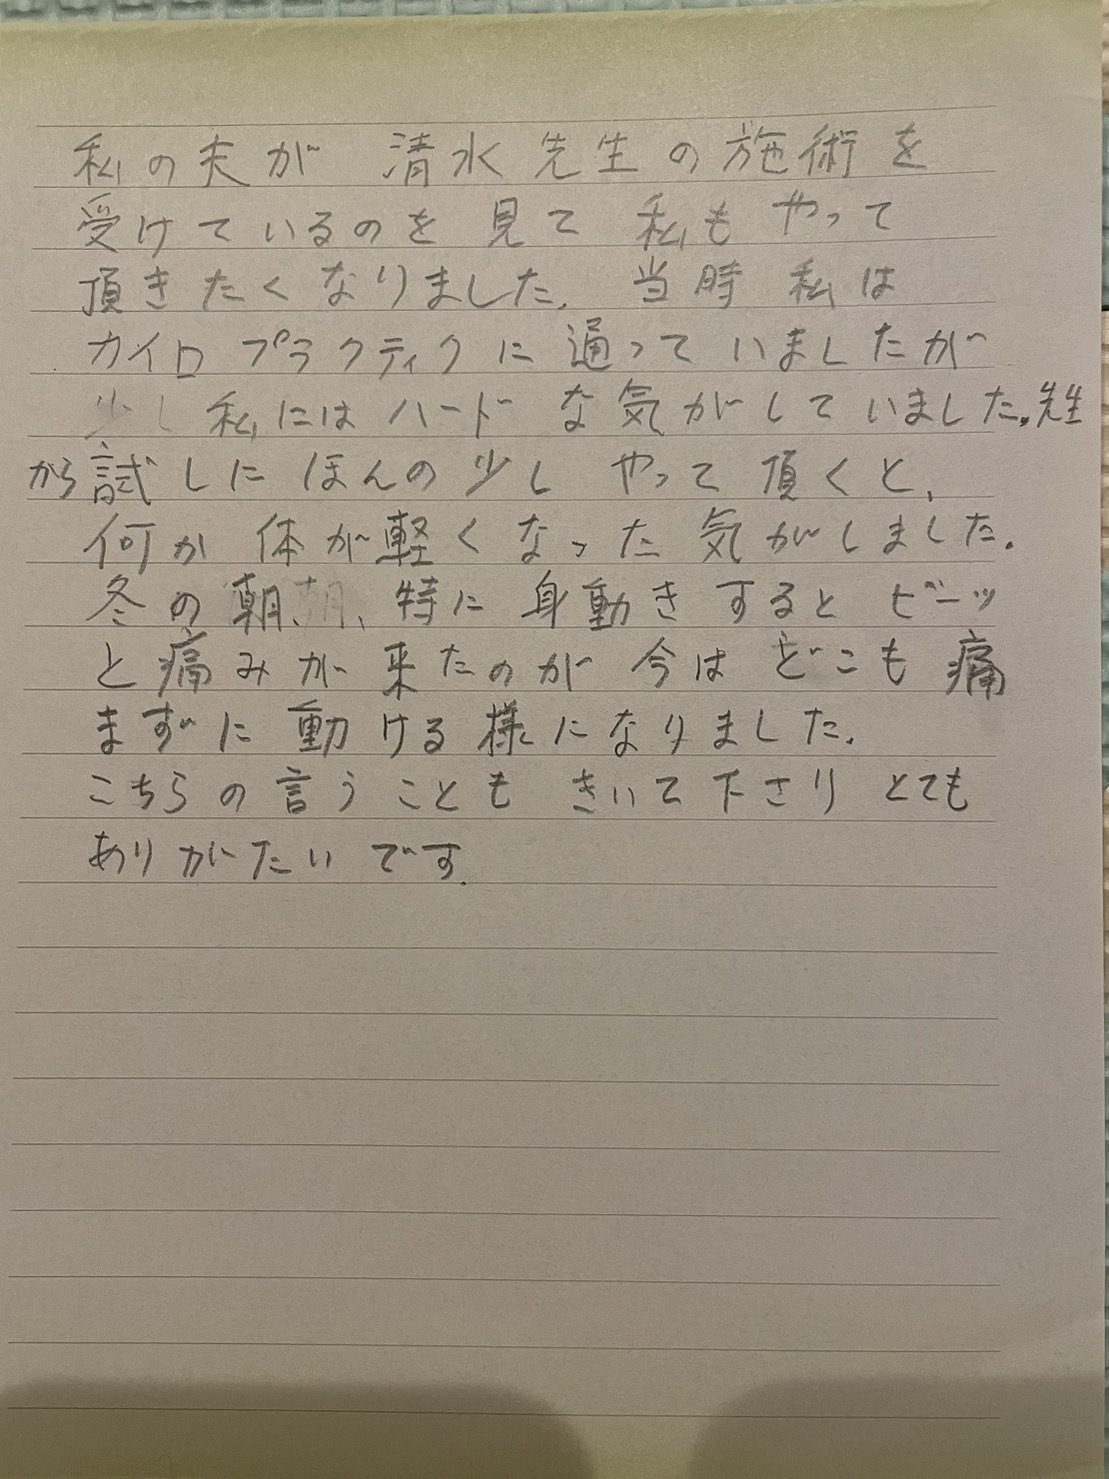 私の夫が 清水先生の施術を
受けているのを 見て 私も やって
頂きたくなりました。当時 私は
カイロプラクティクに 通って いましたが
少し 私にはハードな気がしていました。先生
から試しに ほんの少し やって 頂くと、
何か 体が軽くなった気がしました。
冬の朝、特に 身動きすると ビーッ
と痛みが来たのが 今は どこも痛
まずに 動ける様になりました。
こちらの言うことも きいて下さり とても
ありがたいです。